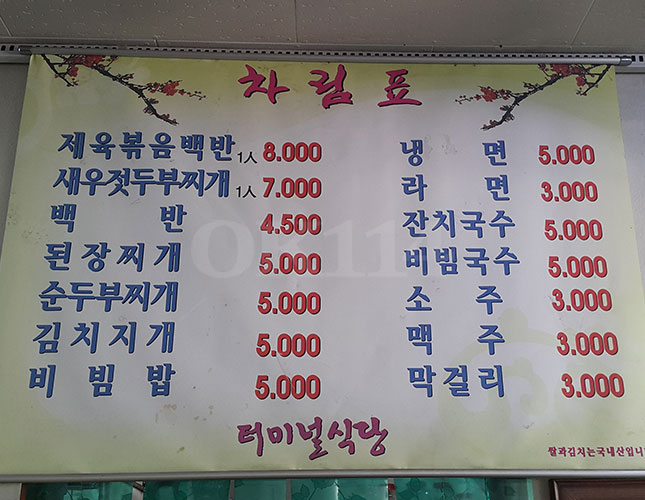 차림표
제육볶음백반 1人 8.000
새우젓두부찌개 1人 7.000
백반 4.500
된장찌개 5.000
순두부찌개 5.000
김치지개 5.000
비빔밥 5.000
냉면 5.000
라면 3.000
잔치국수 5.000
비빔국수 5.000
소주 3.000
맥주 3.000
막걸리 3.000
터미널식당
쌀과김치는국내산입니